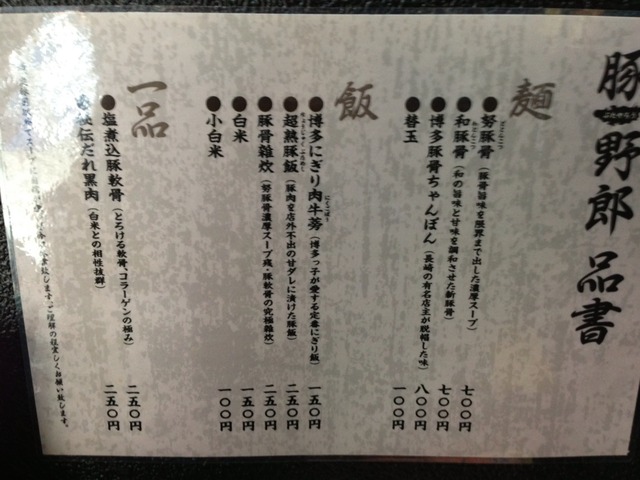 豚野郎 品書
麺
●努豚骨(豚骨旨味を限界まで出した濃厚スープ) 七〇〇円
●和豚骨(和の旨味と甘味を調和させた新豚骨) 七〇〇円
●博多豚骨ちゃんぽん(長崎の有名店主が脱帽した味) 八〇〇円
●替玉 一〇〇円
飯
●博多にぎり肉牛蒡(博多っ子が愛する定番にぎり飯) 一五〇円
●超熟豚飯(豚肉を店外不出の甘ダレに漬けた豚飯) 二五〇円
●豚骨雑炊(努豚骨濃厚スープ残・豚軟骨の究極雑炊) 二五〇円
●白米 一五〇円
●小白米 一〇〇円
一品
●塩煮込豚軟骨(とろける軟骨、コラーゲンの極み) 二五〇円
伝だれ黒肉(白米との相性抜群) 二五〇円
致します。ご理解の程宜しくお願い致します。